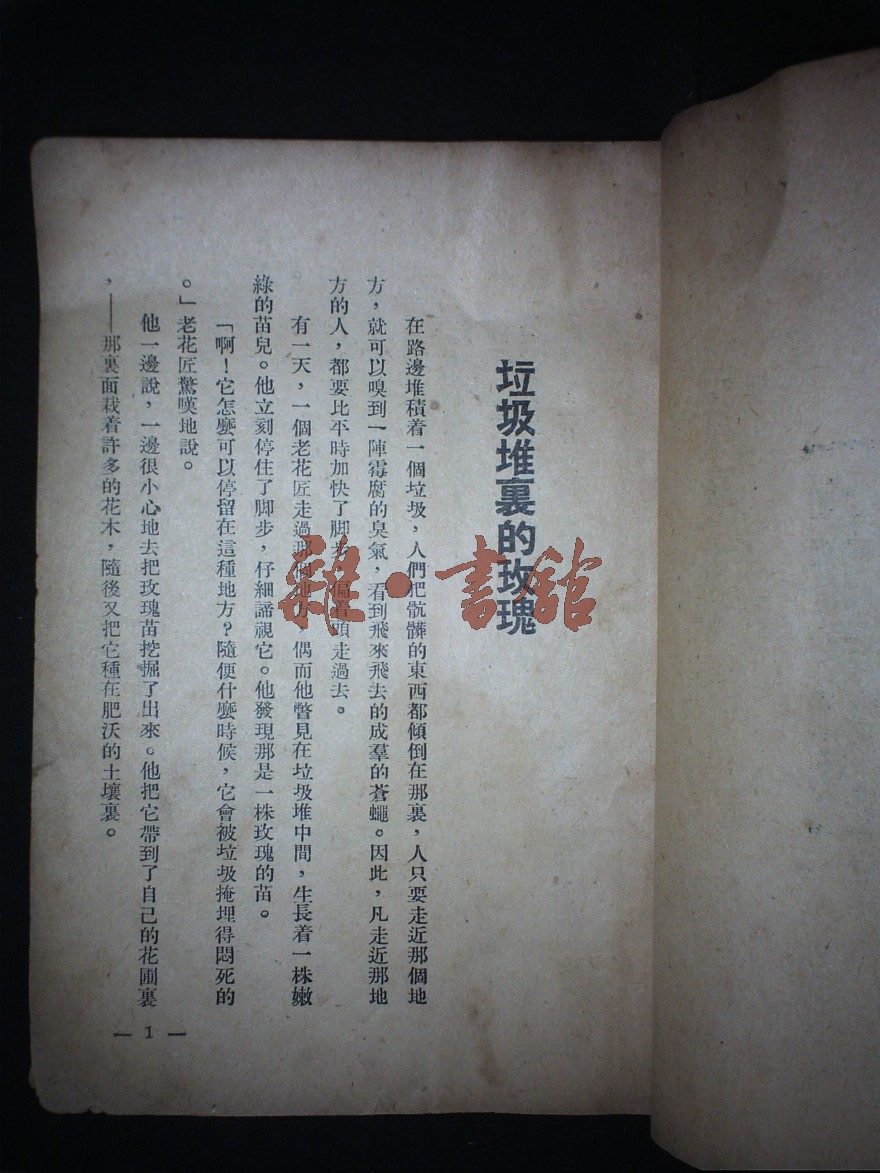 垃圾堆裏的玫瑰
在路邊堆積着一個垃圾，人們把骯髒的東西都傾倒在那裏，人只要走近那個地
方，就可以嗅到一陣霉腐的臭氣，看到飛來飛去的成羣的蒼蠅。因此，凡走近那地
方的人，都要比平時加快了脚步，偏着頭走過去。
有一天，一個老花匠走過那個地方，偶而他瞥見在垃圾堆中間，生長着一株嫩
綠的苗兒。他立刻停住了脚步，仔細諦視它。他發現那是一株玫瑰的苗。
「啊！它怎麼可以停留在這種地方？隨便什麼時候，它會被垃圾掩埋得悶死的
。」老花匠驚嘆地說。
他一邊說，一邊很小心地去把玫瑰苗挖掘了出來。他把它帶到了自己的花圃裏
，——那裏面栽着許多的花木，隨後又把它種在肥沃的土壤裏。
— 1 —
雜·書館